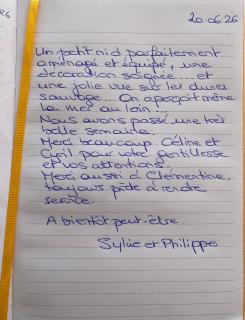 20.06.26
Un petit nid parfaitement
aménagé et équipé, une
décoration soignée... et
une jolie vue sur les dunes
sauvage... On aperçoit même
la mer au loin...
Nous avons passé une très
belle semaine.
Merci beaucoup Céline et
Cyril pour votre gentillesse
et vos attentions.
Merci aussi à Clémentine,
toujours prête à rendre
service.
A bientôt peut-être.
Sylvie et Philippe